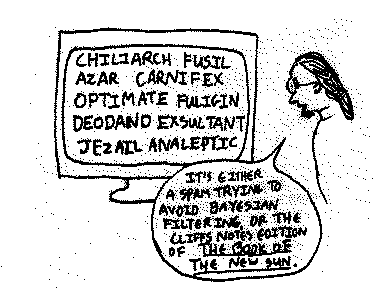 CHILIARCH FUSIL
AZAR CARNIFEX
OPTIMATE FULIGIN
DEODAND EXSULTANT
JEZAIL ANALEPTIC
IT'S EITHER
A SPAM TRYING TO
AVOID BAYESIAN
FILTERING, OR THE
CLIFFS NOTES EDITION
OF THE BOOK OF
THE NEW SUN.